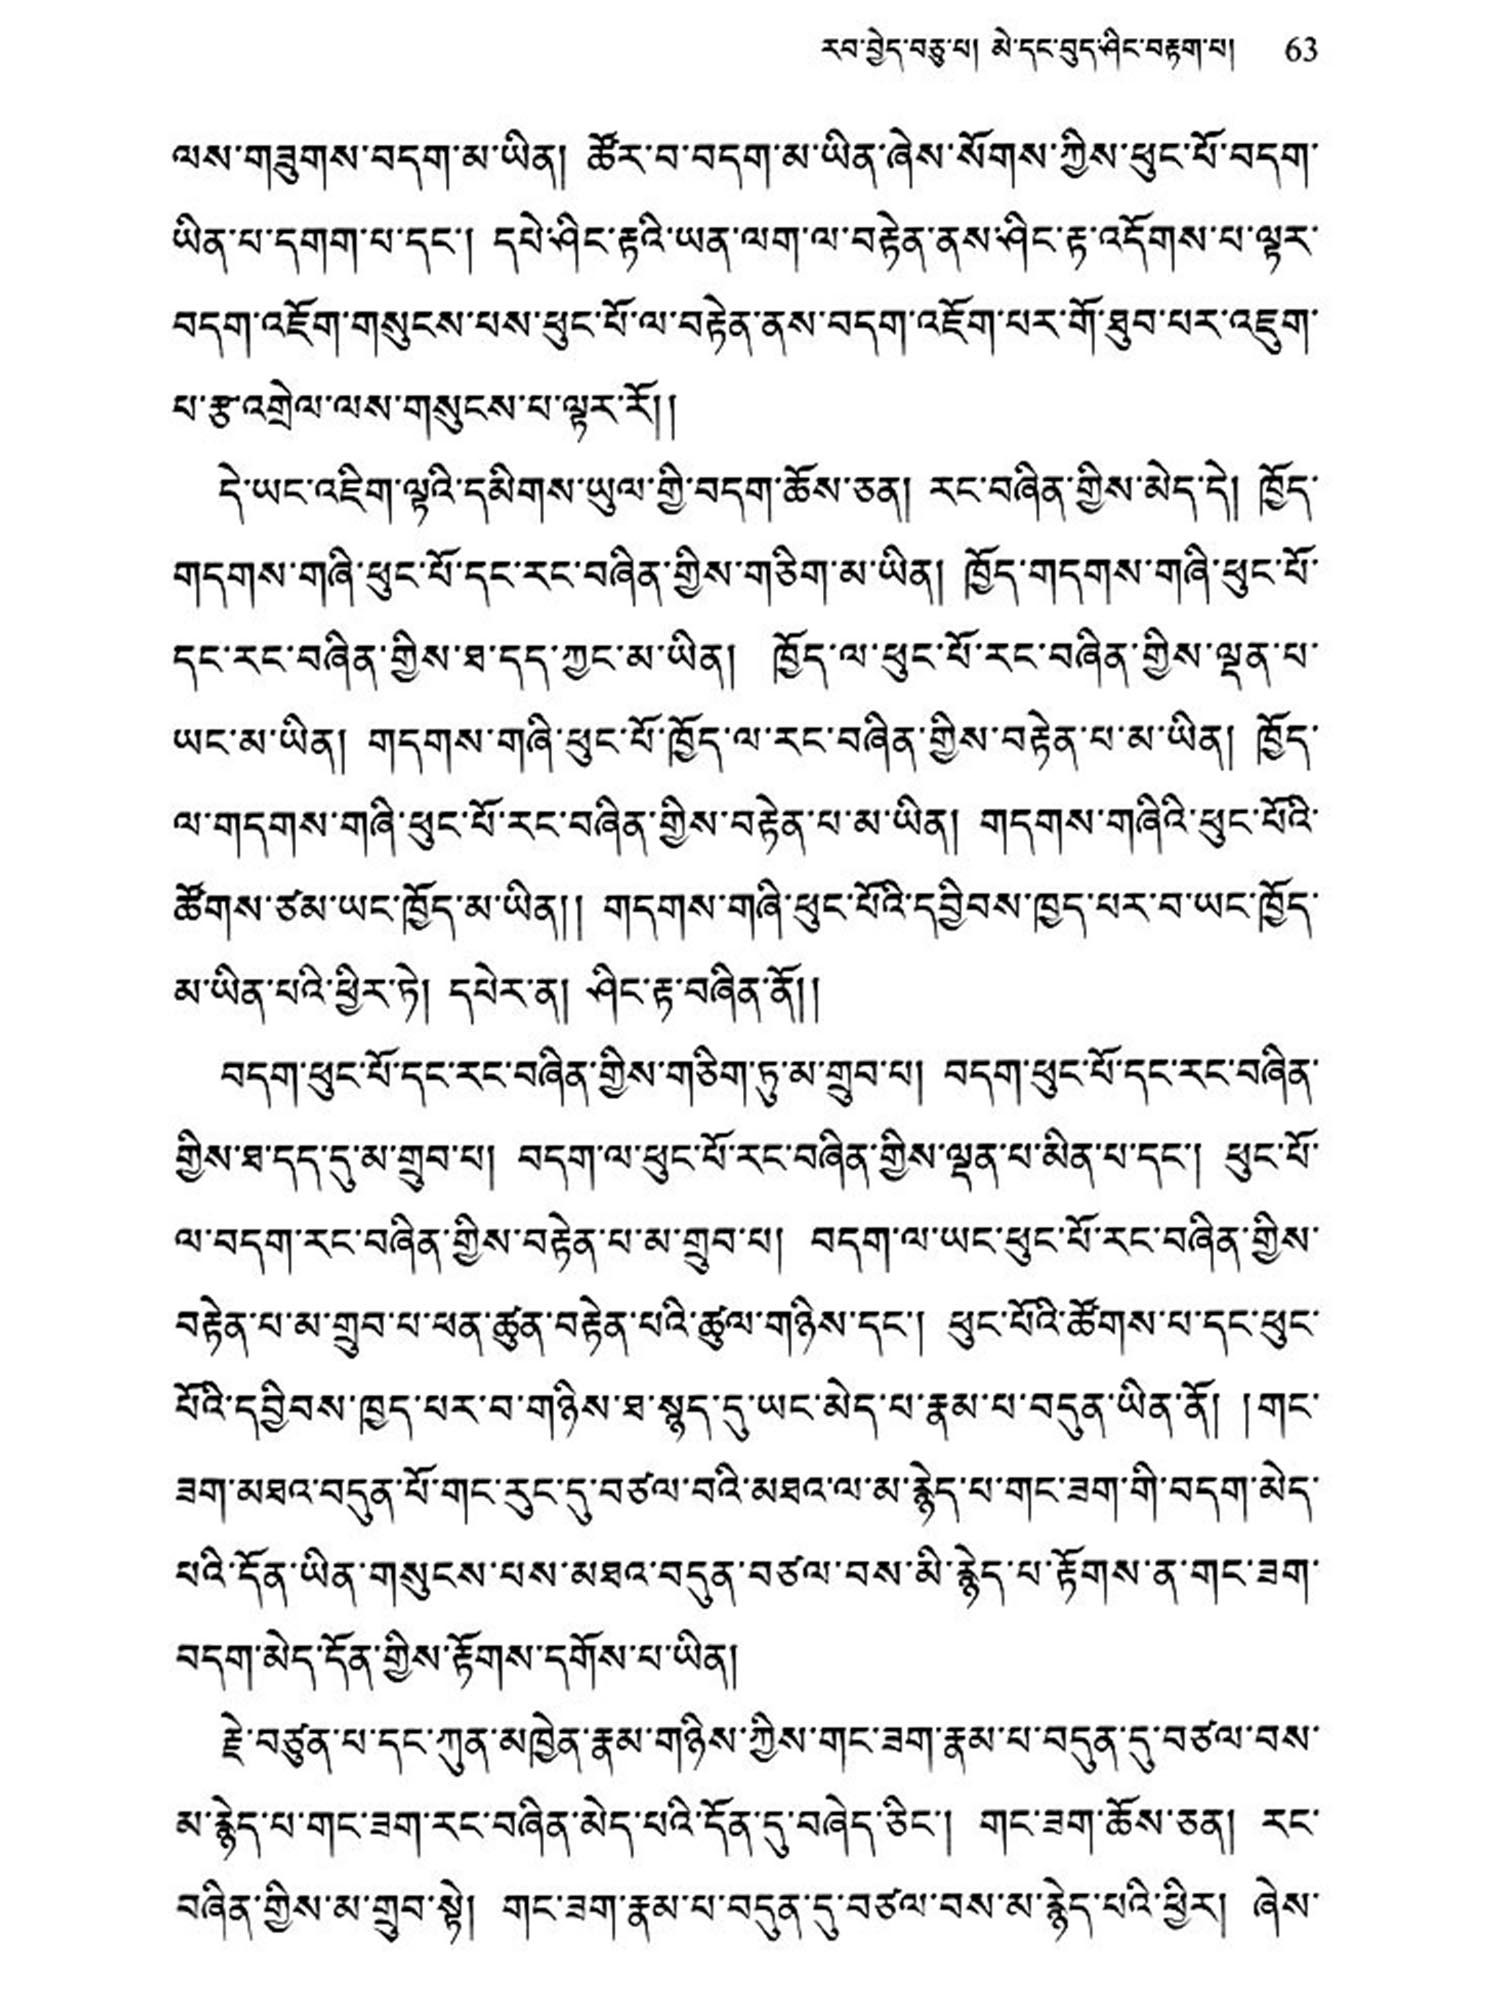 རབ་བྱེད་བཅུ་པ། མེ་དང་བུད་ཤིང་བརྟག་པ། 63
ལས་གཟུགས་བདག་མ་ཡིན། ཚོར་བ་བདག་མ་ཡིན་ཞེས་སོགས་ཀྱིས་ཕུང་པོ་བདག་
ཡིན་པ་དགག་པ་དང་། དཔེ་ཤིང་རྟའི་ཡན་ལག་ལ་བརྟེན་ནས་ཤིང་རྟ་འདོགས་པ་ལྟར་
བདག་འཇོག་གསུངས་པས་ཕུང་པོ་ལ་བརྟེན་ནས་བདག་འཇོག་པར་གོ་ཐུབ་པར་འཇུག་
པ་རྩ་འགྲེལ་ལས་གསུངས་པ་ལྟར་རོ།།
དེ་ཡང་འཇིག་ལྟའི་དམིགས་ཡུལ་གྱི་བདག་ཆོས་ཅན། རང་བཞིན་གྱིས་མེད་དེ། ཁྱོད་
གདགས་གཞི་ཕུང་པོ་དང་རང་བཞིན་གྱིས་གཅིག་མ་ཡིན། ཁྱོད་གདགས་གཞི་ཕུང་པོ་
དང་རང་བཞིན་གྱིས་ཐ་དད་ཀྱང་མ་ཡིན། ཁྱོད་ལ་ཕུང་པོ་རང་བཞིན་གྱིས་ལྡན་པ་
ཡང་མ་ཡིན། གདགས་གཞི་ཕུང་པོ་ཁྱོད་ལ་རང་བཞིན་གྱིས་བརྟེན་པ་མ་ཡིན། ཁྱོད་
ལ་གདགས་གཞི་ཕུང་པོ་རང་བཞིན་གྱིས་བརྟེན་པ་མ་ཡིན། གདགས་གཞིའི་ཕུང་པོའི་
ཚོགས་ཙམ་ཡང་ཁྱོད་མ་ཡིན།། གདགས་གཞི་ཕུང་པོའི་དབྱིབས་ཁྱད་པར་བ་ཡང་ཁྱོད་
མ་ཡིན་པའི་ཕྱིར་ཏེ། དཔེར་ན། ཤིང་རྟ་བཞིན་ནོ།།
བདག་ཕུང་པོ་དང་རང་བཞིན་གྱིས་གཅིག་ཏུ་མ་གྲུབ་པ། བདག་ཕུང་པོ་དང་རང་བཞིན་
གྱིས་ཐ་དད་དུ་མ་གྲུབ་པ། བདག་ལ་ཕུང་པོ་རང་བཞིན་གྱིས་ལྡན་པ་མིན་པ་དང་། ཕུང་པོ་
ལ་བདག་རང་བཞིན་གྱིས་བརྟེན་པ་མ་གྲུབ་པ། བདག་ལ་ཡང་ཕུང་པོ་རང་བཞིན་གྱིས་
བརྟེན་པ་མ་གྲུབ་པ་ཕན་ཚུན་བརྟེན་པའི་ཚུལ་གཉིས་དང་། ཕུང་པོའི་ཚོགས་པ་དང་ཕུང་
པོའི་དབྱིབས་ཁྱད་པར་བ་གཉིས་ཐ་སྙད་དུ་ཡང་མེད་པ་རྣམ་པ་བདུན་ཡིན་ནོ། །གང་
ཟག་མཐའ་བདུན་པོ་གང་རུང་དུ་བཙལ་བའི་མཐའ་ལ་མ་རྙེད་པ་གང་ཟག་གི་བདག་མེད་
པའི་དོན་ཡིན་གསུངས་པས་མཐའ་བདུན་བཙལ་བས་མི་རྙེད་པ་རྟོགས་ན་གང་ཟག་
བདག་མེད་དོན་གྱིས་རྟོགས་དགོས་པ་ཡིན།
རྗེ་བཙུན་པ་དང་ཀུན་མཁྱེན་རྣམ་གཉིས་ཀྱིས་གང་ཟག་རྣམ་པ་བདུན་དུ་བཙལ་བས་
མ་རྙེད་པ་གང་ཟག་རང་བཞིན་མེད་པའི་དོན་དུ་བཞེད་ཅིང་། གང་ཟག་ཆོས་ཅན། རང་
བཞིན་གྱིས་མ་གྲུབ་སྟེ། གང་ཟག་རྣམ་པ་བདུན་དུ་བཙལ་བས་མ་རྙེད་པའི་ཕྱིར། ཞེས་